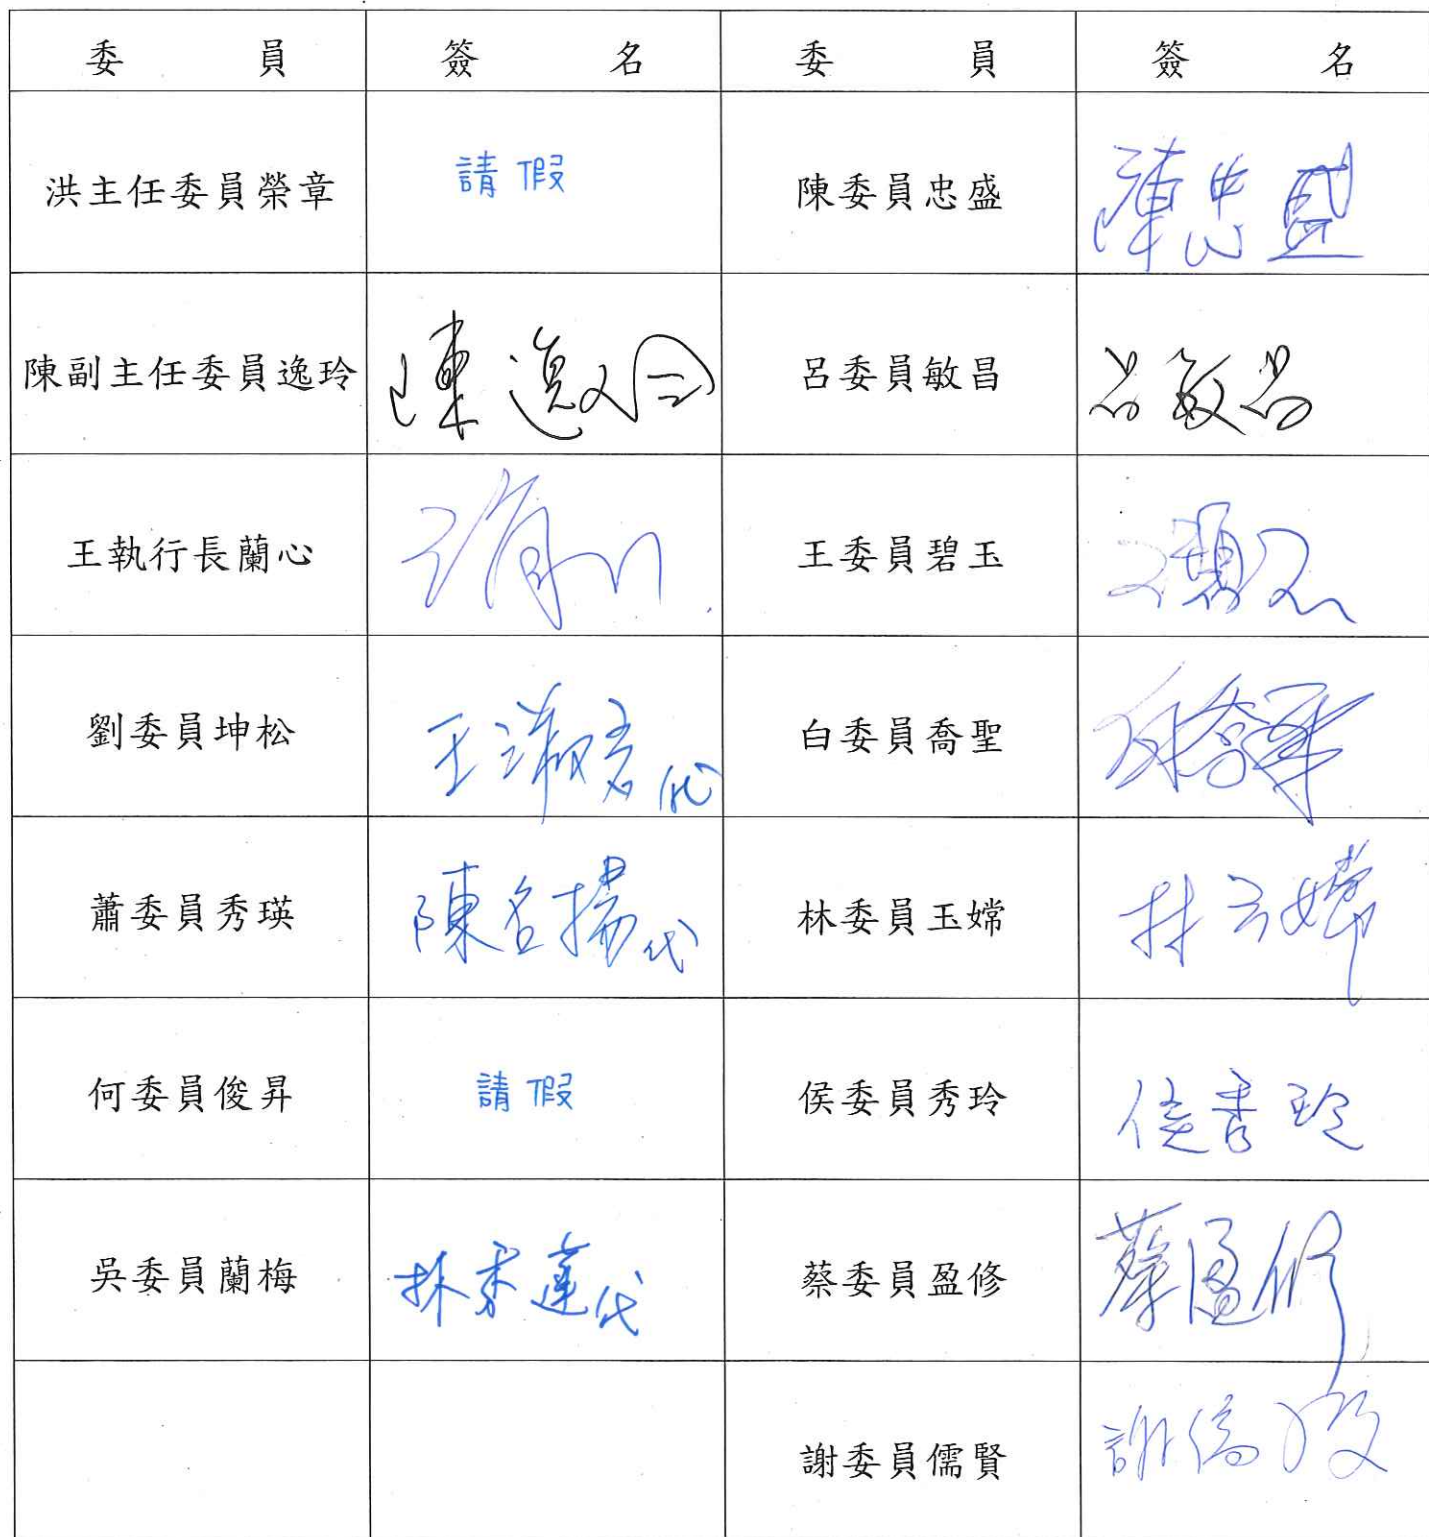 委員 簽名 委員 簽名
洪主任委員榮章 請假 陳委員忠盛 陳忠盛
陳副主任委員逸玲 陳逸玲 呂委員敏昌 呂敏昌
王執行長蘭心 王委員碧玉
劉委員坤松 王淑君代 白委員喬聖
蕭委員秀瑛 陳名揚代 林委員玉嫦 林玉嫦
何委員俊昇 請假 侯委員秀玲 侯秀玲
吳委員蘭梅 林秀蓮代 蔡委員盈修 蔡盈修
謝委員儒賢